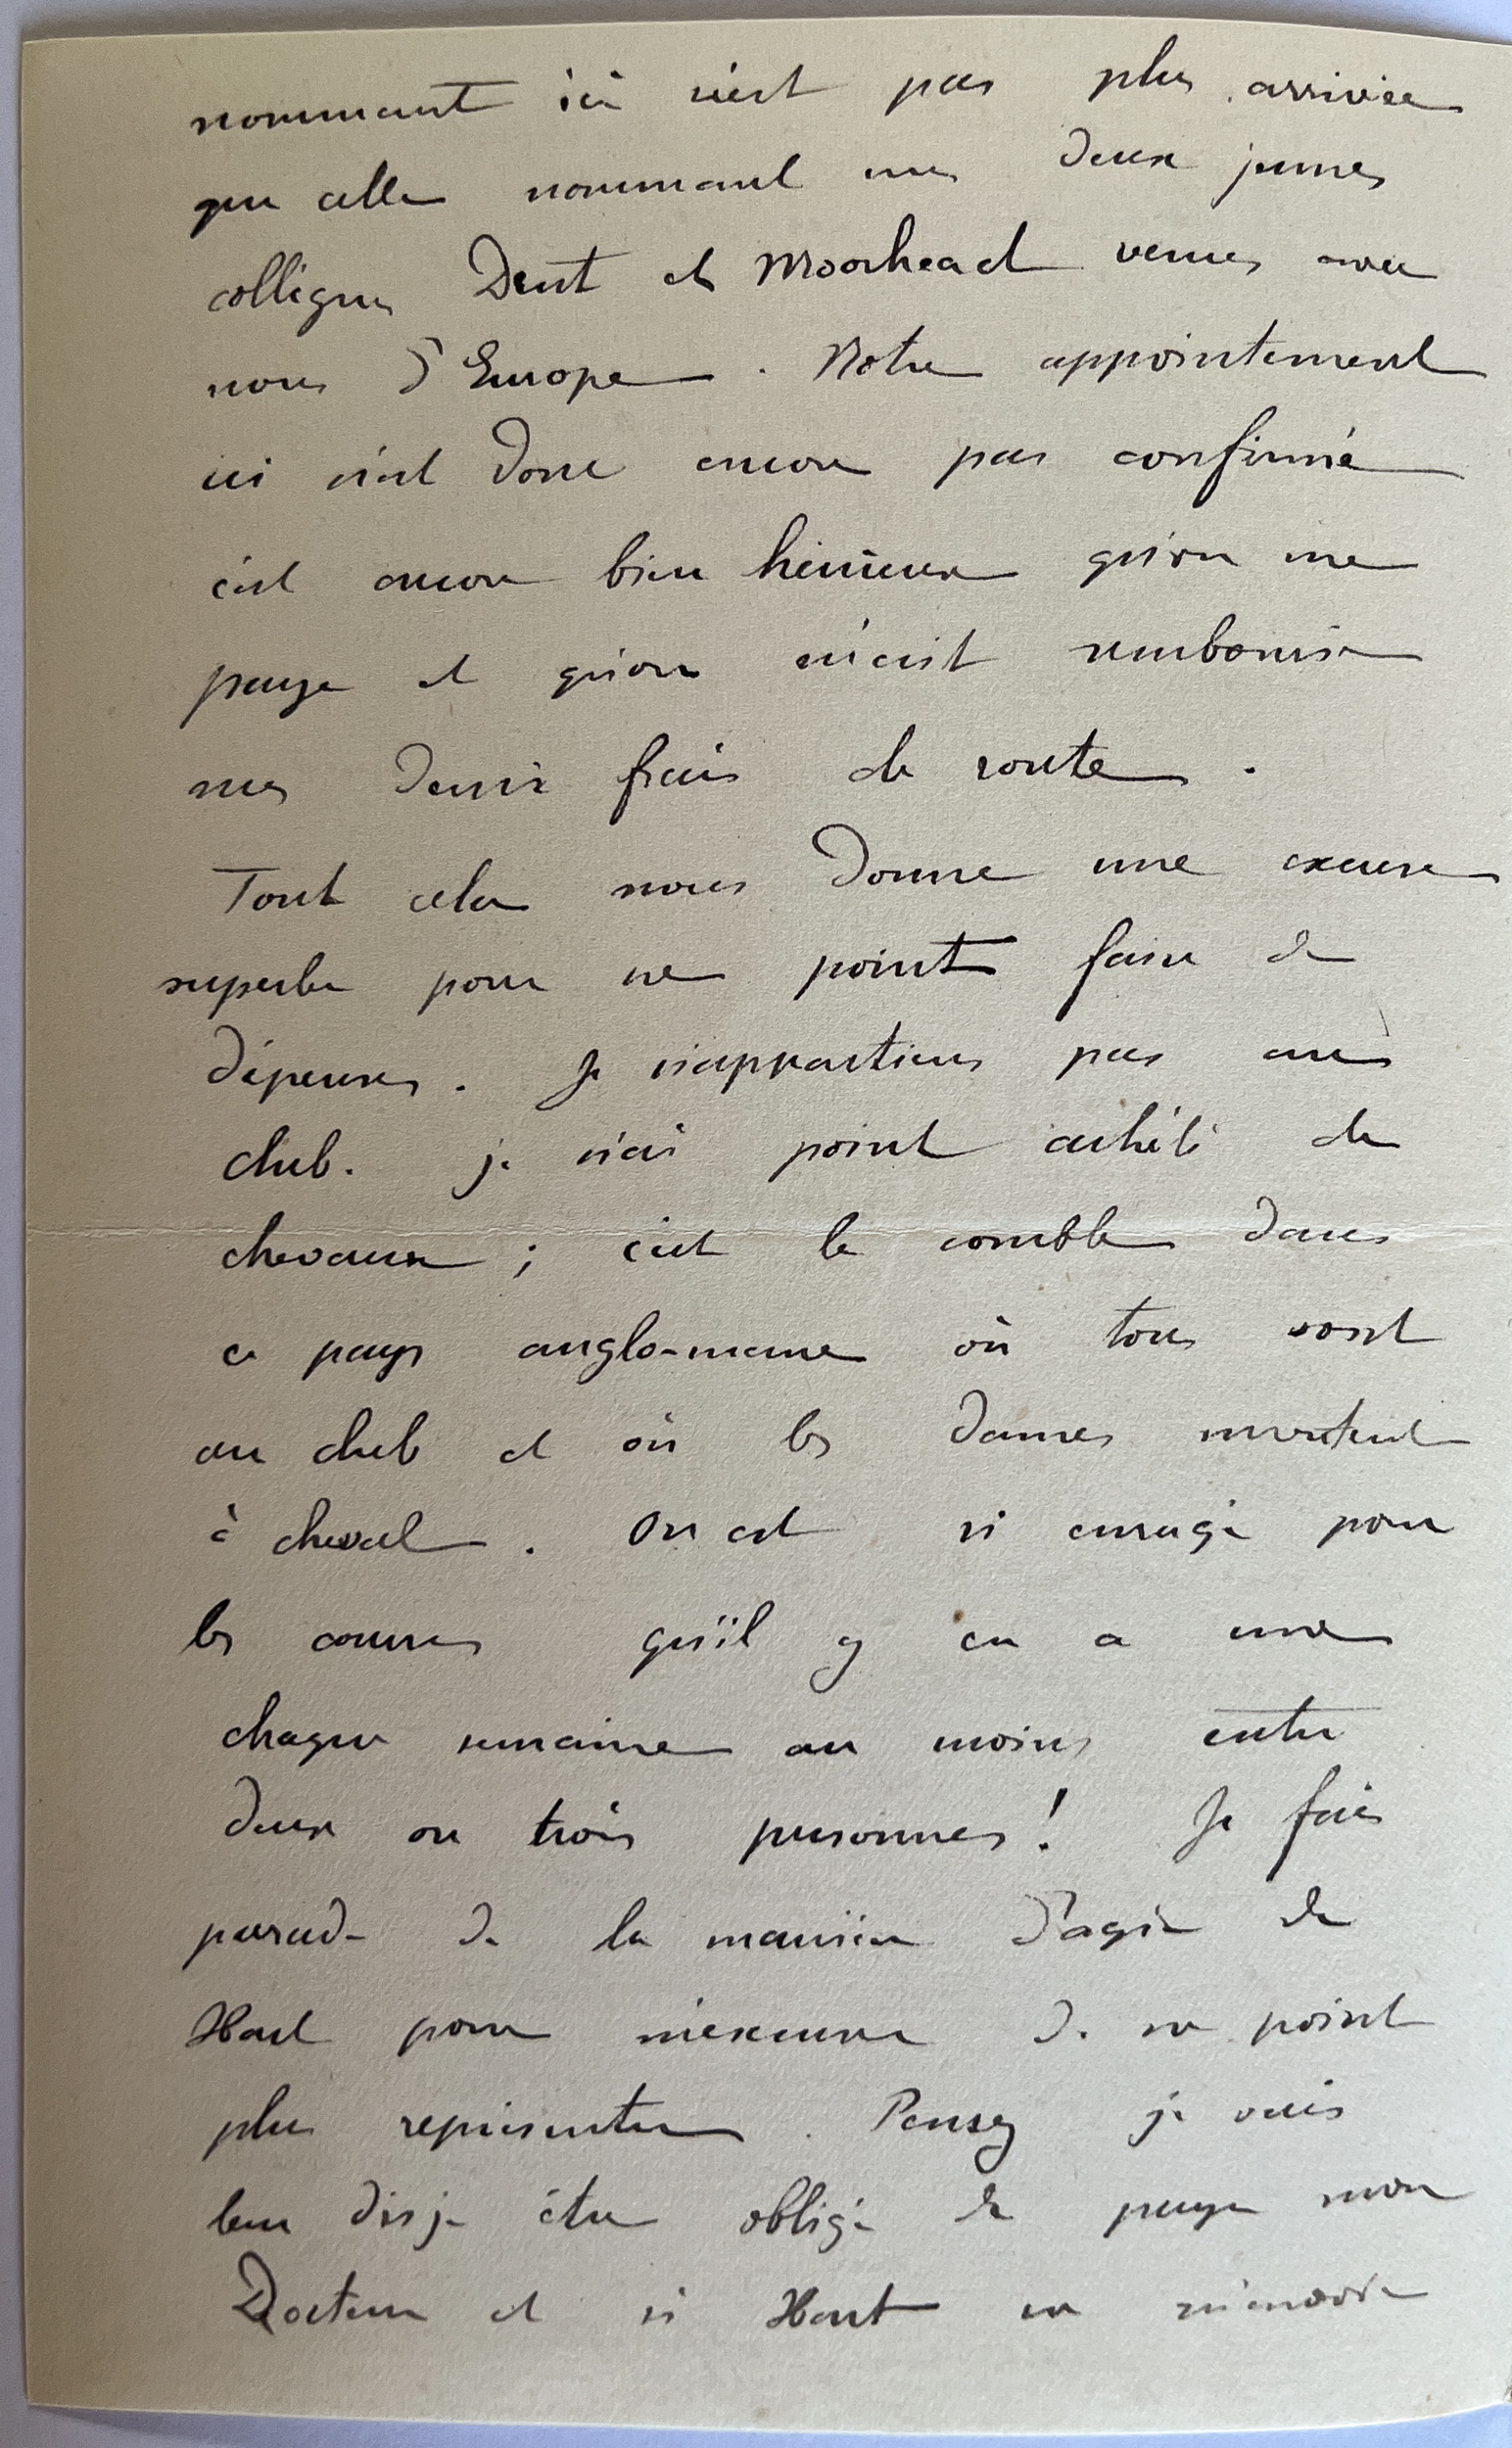 nommant ici n'est pas plus arrivée
que celle nommant mes deux jeunes
collègues Dent et Moorhead venus avec
nous d'Europe. Notre appointement
ici n'est donc encore pas confirmé
c'est encore bien heureux qu'on me
paye et qu'on m'ait remboursé
mes demis frais de route.
Tout cela nous donne une excuse
superbe pour ne point faire de
dépenses. Je n'appartiens pas au
club. je n'ai point acheté de
chevaux ; c'est le comble dans
ce pays anglo-mane où tous sont
au club et où les dames montent
à cheval. On est si enragé pour
les courses qu'il y en a une
chaque semaine au moins entre
deux ou trois personnes ! Je fais
parade de la manière d'agir de
Hart pour m'excuser de ne point
plus représenter. Pensez je vais
leur dis je être obligé de payer mon
Docteur et si Hart ne m'envoie